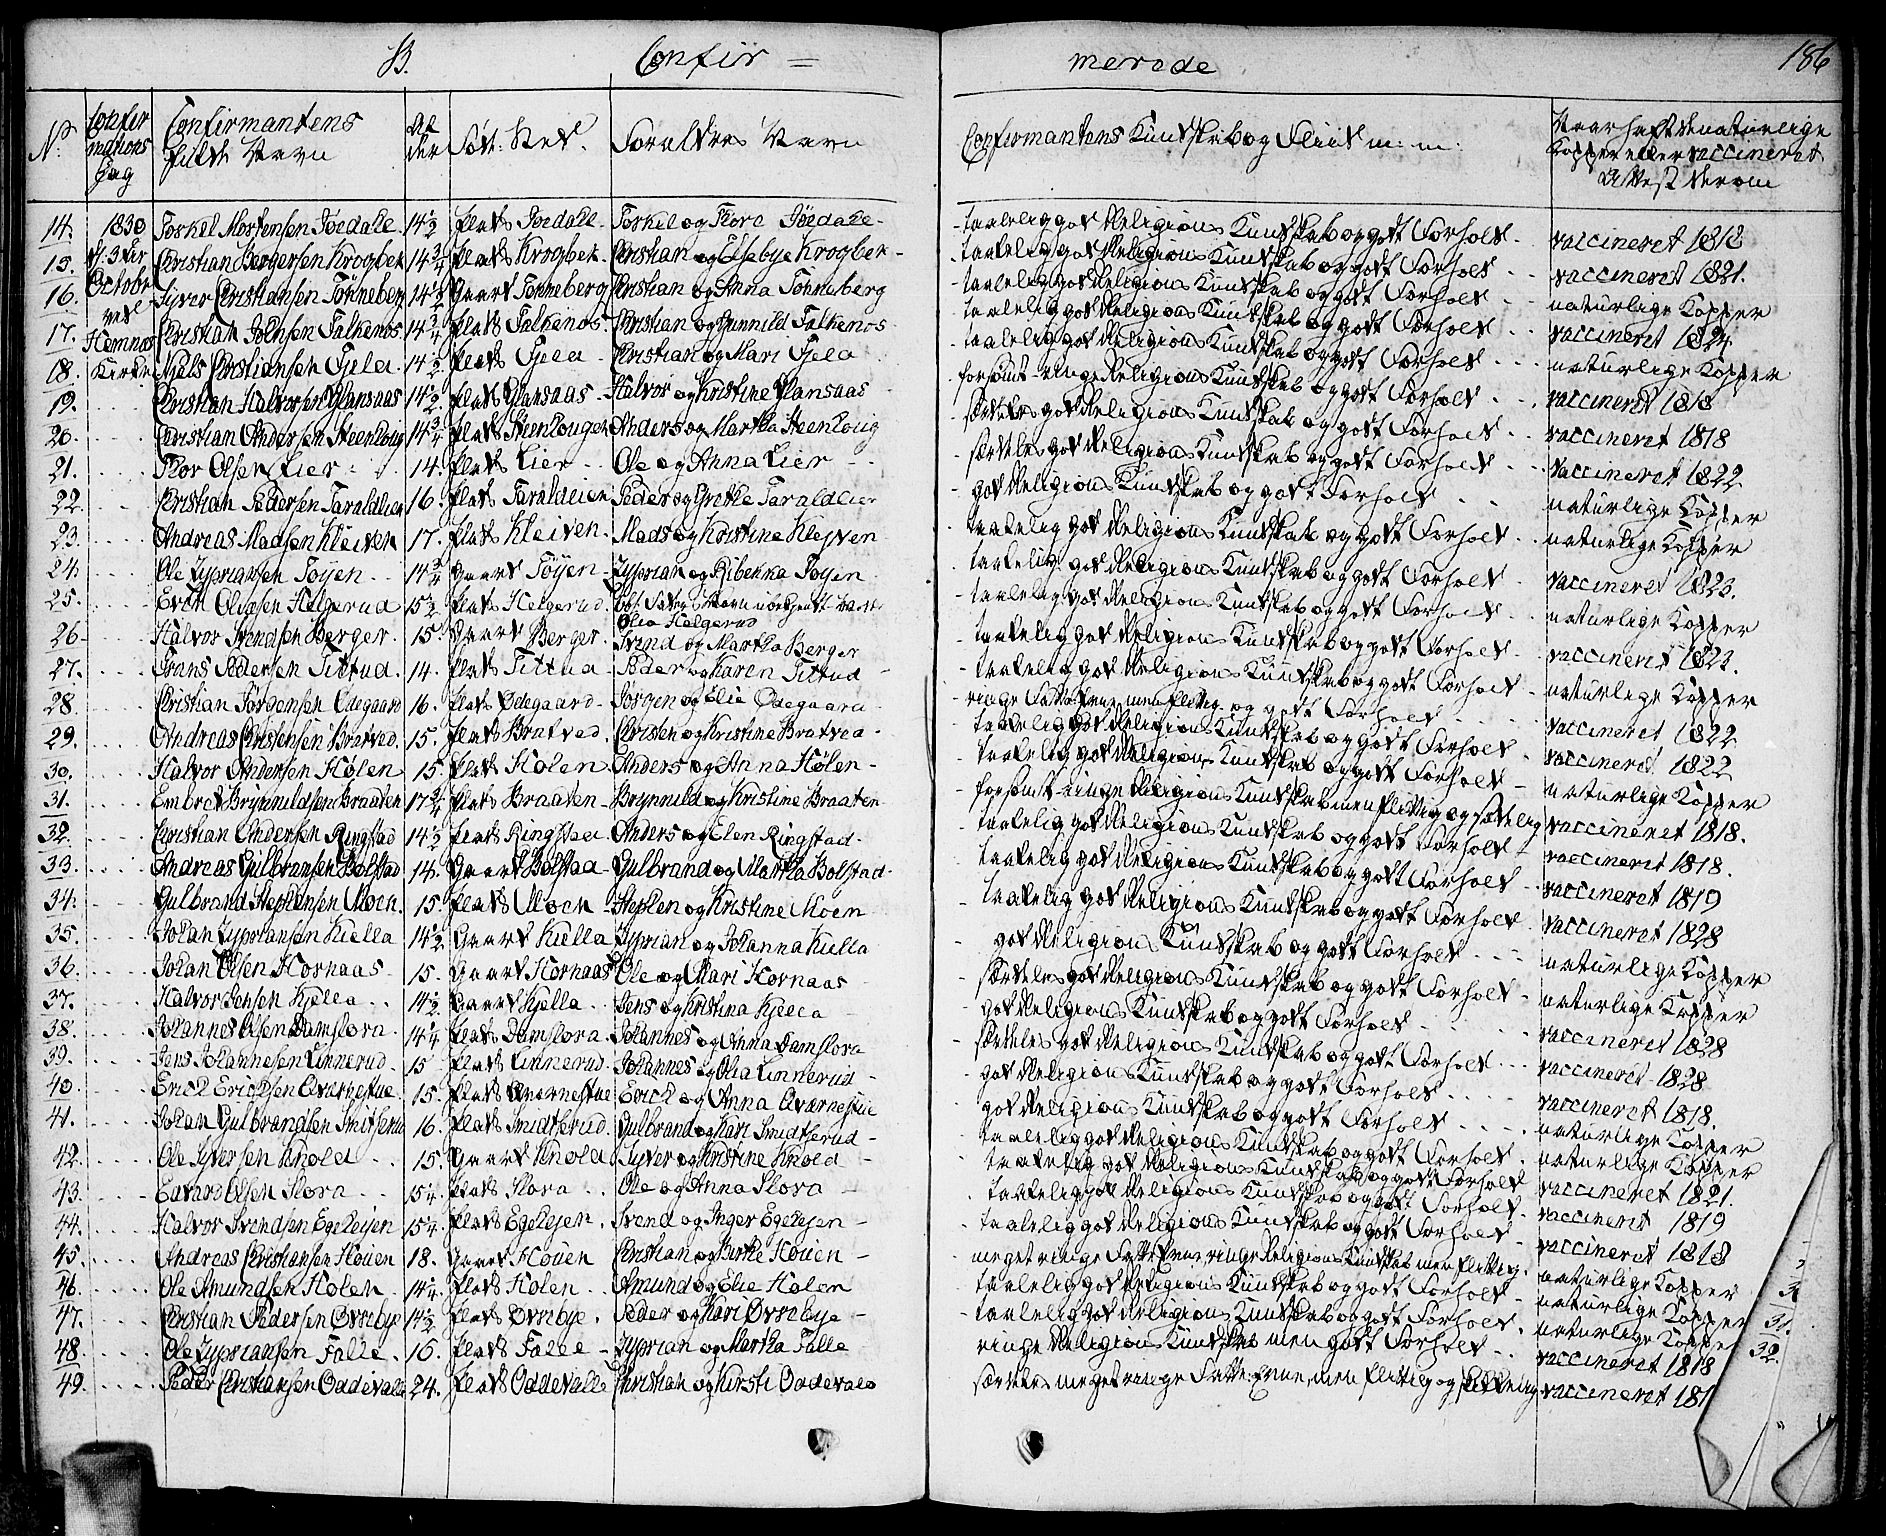 B. Confir=
merede 186
No. Confirmations Dag Confirmantens fulde Navn Alder Føde-Sted. Forældres Navn Confirmantens Kundskab og Fliid m: m: Naar haft de naturlige Kopper eller vaccineret Attest derom
14. 1830 Torkel Mortensen Joedale 14½ Plads Joedale Torkel og Thore Joedale taalelig god Religions Kundskab og godt Forhold vaccineret 1818
15. d. 3die Christian Børgersen Krogbek 14¾ Plads Krogbek Christian og Elsebye Krogbek taalelig god Religions Kundskab og godt Forhold vaccineret 1821.
16. October Syver Christiansen Tønneberg 14½ Gaard Tønneberg Christian og Anna Tønneberg taalelig god Religions Kundskab og godt Forhold naturlige Kopper
17. ved Hemnæs Christian Johnsen Falkenos 14¾ Plads Falkenos Christian og Gunnild Falkenos taalelig god Religions Kundskab og godt Forhold vaccineret 1824
18. Kirke Niels Christiansen Fjela 14½ Plads Fjela Christian og Mari Fjela taalelig god Religions Kundskab og godt Forhold naturlige Kopper
19. Christian Halvorsen Glansaas 14½ Plads Glansaas Halvor og Kristine Glansaas forsømt - ringe Religions Kundskab og godt Forhold vaccineret 1818
20. Christian Andersen Steenloug 14¾ Plads Steenlougen Anders og Martha Steenloug særdeles god Religions Kundskab og godt Forhold vaccineret 1818
21. Thor Olsen Lier 14. Plads Lier Ole og Anna Lier særdeles god Religions Kundskab og godt Forhold vaccineret 1822
22. Christian Pedersen Taraldlien 16. Plads Taraldlien Peder og Grethe Taraldlien god Religions Kundskab og godt Forhold naturlige Kopper
23. Andreas Madsen Kleiven 17. Plads Kleiven Mads og Kristine Klejven taalelig god Religions Kundskab og godt Forhold naturlige Kopper
24. Ole Zypriansen Tøyen 14¾ Gaard Tøyen Zyprian og Ribekka Tøyen taalelig god Religions Kundskab og godt Forhold vaccineret 1823.
25. Even Olsen Helgerud 15½ Plads Helgerud Olia Helgerud taalelig god Religions Kundskab og godt Forhold naturlige Kopper
26. Halvor Svendsen Berger 15 Gaard Berger Svend og Martha Berger taalelig god Religions Kundskab og godt Forhold vaccineret 1823.
27. Frans Pedersen Tittud 14. Plads Tittud Peder og Karen Tittud taalelig god Religions Kundskab og godt Forhold naturlige Kopper
28. Christian Jørgensen Ødegaard 16. Plads Ødegaard Jørgen og Elie Ødegaard ringe Fatte Evne, men flittig og godt Forhold vaccineret 1822
29. Andreas Christensen Bratved 15. Plads Bratved Christen og Kristine Bratved taalelig god Religions Kundskab og godt Forhold vaccineret 1822
30. Halvor Andersen Holen 15. Plads Holen Anders og Anna Holen taalelig god Religions Kundskab og godt Forhold naturlige Kopper
31. Embret Brynnildsen Braaten 17¾ Plads Braaten Brynnild og Kristine Braaten forsømt - ringe Religions Kundskab men flittig og sædelig vaccineret 1818.
32. Christian Andersen Ringstad 14½ Plads Ringstad Anders og Elen Ringstad taalelig god Religions Kundskab og godt Forhold vaccineret 1818.
33. Andreas Gulbransen Bolstad 14. Gaard Bolstad Gulbrand og Martha Bolstad taalelig god Religions Kundskab og godt Forhold vaccineret 1819
34. Gulbrand Stephensen Moen 15. Plads Moen Stephen og Kristine Moen taalelig god Religions Kundskab og godt Forhold vaccineret 1828
35. Johan Zypriansen Kiella 14½ Gaard Kiella Zyprian og Johanna Kiella god Religions Kundskab og godt Forhold naturlige Kopper
36. Johan Olsen Hornaas 15. Gaard Hornaas Ole og Mari Hornaas særdeles god Religions Kundskab og godt Forhold naturlige Kopper
37. Halvor Jensen Kjella 14½ Gaard Kjella Jens og Kristina Kjella god Religions Kundskab og godt Forhold vaccineret 1828
38. Johannes Olsen Damslora 14¼ Plads Damslora Johannes og Anna Damslora særdeles god Religions Kundskab og godt Forhold vaccineret 1828
39. Jens Johannesen Linnerud 15 Plads Linnerud Johannes og Olia Linnerud god Religions Kundskab og godt Forhold vaccineret 1818.
40. Erich Erichsen Qværnestue 15. Plads Qværnestue Erich og Anna Qværnestue god Religions Kundskab og godt Forhold naturlige Kopper
41. Johan Gulbrandsen Smidtserud 16. Plads Smidtserud Gulbrand og Kari Smidtserud taalelig god Religions Kundskab og godt Forhold naturlige Kopper
42. Ole Syversen Knold 15. Gaard Knold Syver og Kristine Knold taalelig god Religions Kundskab og godt Forhold vaccineret 1821.
43. Edvard Olsen Slora 15¼ Plads Slora Ole og Anna Slora taalelig god Religions Kundskab og godt Forhold vaccineret 1819
44. Halvor Svendsen Egelejen 15¼ Plads Egelejen Svend og Inger Egelejen taalelig god Religions Kundskab og godt Forhold vaccineret 1818
45. Andreas Christiansen Houen 18. Gaard Houen Christian og Birthe Houen meget ringe Fatte Evne, ringe Religions Kundskab men flittig. naturlige Kopper
46. Ole Amundsen Holen 14¼ Plads Holen Amund og Elie Holen taalelig god Religions Kundskab og godt Forhold naturlige Kopper
47. Christian Pedersen Øvrebye 14½ Plads Øvrebye Peder og Kari Øvrebye taalelig god Religions Kundskab og godt Forhold naturlige Kopper
48. Ole Zypriansen Falle 16. Plads Falle Zyprian og Martha Falle ringe Religions Kundskab men godt Forhold vaccineret 1818
49. Peder Christiansen Oddevale 24. Plads Oddevalle Christian og Kirsti Oddevale særdeles meget ringe Fatte Evne, men flittig og sædelig vaccineret 181
31.
32.